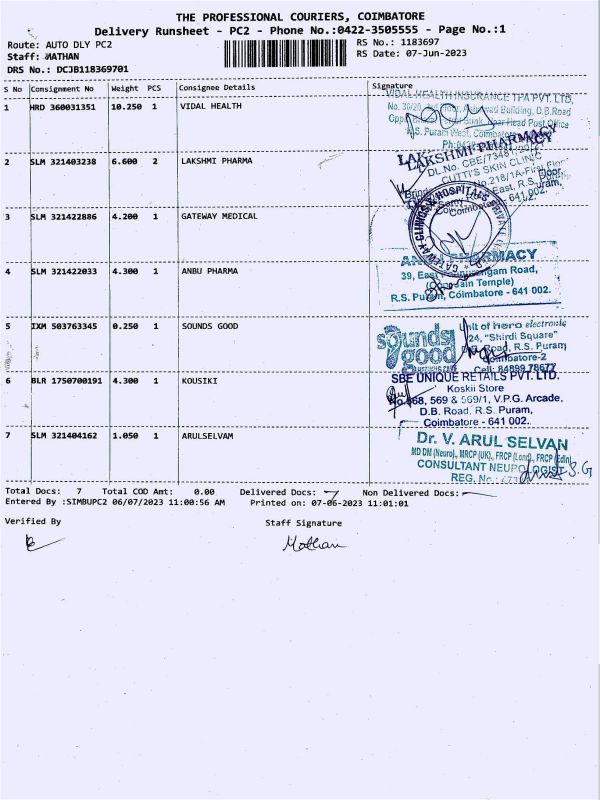 THE PROFESSIONAL COURIERS, COIMBATORE
Delivery Runsheet - PC2 - Phone No.:0422-3505555 - Page No.:1
Route: AUTO DLY PC2
RS No.: 1183697
Staff: MATHAN
RS Date: 07-Jun-2023
DRS No.: DCJB118369701
S No Consignment No Weight PCS Consignee Details Signature
1 HRD 360031351 10.250 1 VIDAL HEALTH
VIDAL HEALTH INSURANCE TPA PVT. LTD,
No. 36/20, Building, D.B.Road
Bank, Near Head Post Office
R.S. Puram West, Coimbatore
2 SLM 321403238 6.600 2 LAKSHMI PHARMA
LAKSHMI PHARMACY
DL.No. CBE/7348
CUTTI'S SKIN CLINIC
No 218/1A-First Floor
East, R.S. Puram,
Coimbatore 641 002.
3 SLM 321422886 4.200 1 GATEWAY MEDICAL
GATEWAY CLINICS & HOSPITALS PRIVATE
4 SLM 321422033 4.300 1 ANBU PHARMA
PHARMACY
39, East Road,
Jain Temple)
R.S. Puram, Coimbatore - 641 002.
5 IXM 503763345 0.250 1 SOUNDS GOOD
sounds good
Unit of hero electronic
24, "Shirdi Square"
Road, R.S. Puram
Coimbatore-2
Cell: 84899 78677
6 BLR 1750700191 4.300 1 KOUSIKI
SBE UNIQUE RETAILS PVT. LTD.
Koskii Store
No.568, 569 & 569/1, V.P.G. Arcade,
D.B. Road, R.S. Puram,
Coimbatore - 641 002.
7 SLM 321404162 1.050 1 ARULSELVAM
Dr. V. ARUL SELVAN
MD DM (Neuro), MRCP (UK), FRCP (Lond), FRCP (Edin)
CONSULTANT NEUROLOGIST
REG. No.:
S.G
Total Docs: 7 Total COD Amt: 0.00 Delivered Docs: 7 Non Delivered Docs: -
Entered By :SIMBUPC2 06/07/2023 11:00:56 AM Printed on: 07-06-2023 11:01:01
Verified By Staff Signature
Mathan